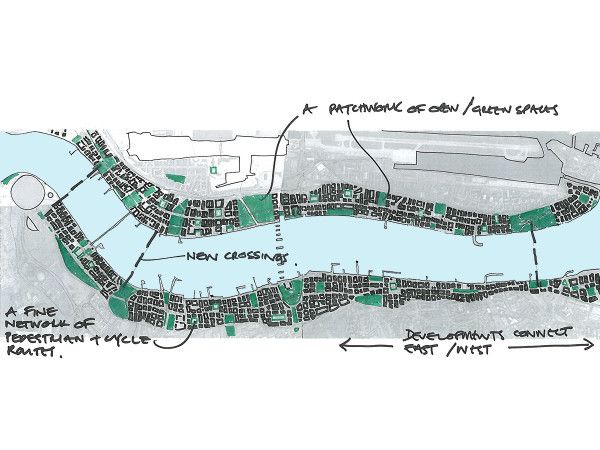 A PATCHWORK OF OPEN/GREEN SPACES
NEW CROSSINGS.
A FINE
NETWORK OF
PEDESTRIAN + CYCLE
ROUTES.
DEVELOPMENTS CONNECT
EAST/WEST